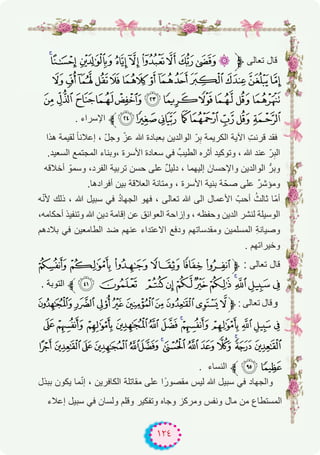 قال تعالى ﴿ وَقَضَىٰ رَبُّكَ أَلَّا تَعْبُدُوٓا۟ إِلَّآ إِيَّاهُ وَبِٱلْوَٰلِدَيْنِ إِحْسَٰنًا ۚ
إِمَّا يَبْلُغَنَّ عِندَكَ ٱلْكِبَرَ أَحَدُهُمَآ أَوْ كِلَاهُمَا فَلَا تَقُل لَّهُمَآ أُفٍّ وَلَا
تَنْهَرْهُمَا وَقُل لَّهُمَا قَوْلًا كَرِيمًا ﴿٢٣﴾ وَٱخْفِضْ لَهُمَا جَنَاحَ ٱلذُّلِّ مِنَ
ٱلرَّحْمَةِ وَقُل رَّبِّ ٱرْحَمْهُمَا كَمَا رَبَّيَانِى صَغِيرًا ﴿٢٤﴾ ﴾ الإسراء .
فقد قرنتِ الآية الكريمة برّ الوالدين بعبادة الله عزّ وجلّ ، إعلاناً لقيمة هذا
البرّ عند الله ، وتوكيد أثره الطيب في سعادة الأسرة ،وبناء المجتمع السعيد.
وبرُّ الوالدين والإحسان إليهما ، دليلٌ على حسن تربية الفرد، وسموّ أخلاقه
ومؤشرٌ على صحّة بنية الأسرة ، ومتانة العلاقة بين أفرادها.
أمّا ثالثُ أحبّ الأعمال الى الله تعالى ، فهو الجهادُ في سبيل الله ، ذلك لأنّه
الوسيلة لنشر الدين وحفظه ، وإزاحة العوائق عن إقامة دين الله وتنفيذ أحكامه،
وصيانةِ المسلمين ومقدساتهم ودفعِ الاعتداء عنهم ضد الطامعين في بلادهم
وخيراتهم .
قال تعالى : ﴿ ٱنفِرُوا۟ خِفَافًا وَثِقَالًا وَجَٰهِدُوا۟ بِأَمْوَٰلِكُمْ وَأَنفُسِكُمْ
فِى سَبِيلِ ٱللَّهِ ۚ ذَٰلِكُمْ خَيْرٌ لَّكُمْ إِن كُنتُمْ تَعْلَمُونَ ﴿٤١﴾ ﴾ التوبة .
و قال تعالى : ﴿ لَّا يَسْتَوِى ٱلْقَٰعِدُونَ مِنَ ٱلْمُؤْمِنِينَ غَيْرُ أُو۟لِى ٱلضَّرَرِ وَٱلْمُجَٰهِدُونَ
فِى سَبِيلِ ٱللَّهِ بِأَمْوَٰلِهِمْ وَأَنفُسِهِمْ ۚ فَضَّلَ ٱللَّهُ ٱلْمُجَٰهِدِينَ بِأَمْوَٰلِهِمْ وَأَنفُسِهِمْ عَلَى
ٱلْقَٰعِدِينَ دَرَجَةً ۚ وَكُلًّا وَعَدَ ٱللَّهُ ٱلْحُسْنَىٰ ۚ وَفَضَّلَ ٱللَّهُ ٱلْمُجَٰهِدِينَ عَلَى ٱلْقَٰعِدِينَ أَجْرًا
عَظِيمًا ﴿٩٥﴾ ﴾ النساء .
والجهاد في سبيل الله ليس مقصورًا على مقاتلة الكافرين ، إنّما يكون ببذل
المستطاع من مال ونفس ومركز وجاه وتفكير وقلم ولسان في سبيل إعلاء
١٢٤